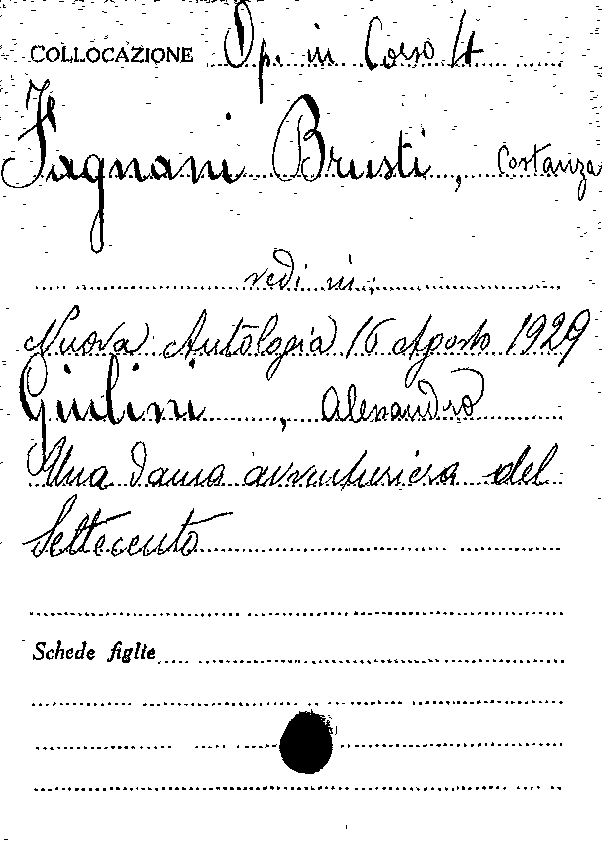 COLLOCAZIONE Op. in Corso 4
Fagnani Brusti, Costanza
vedi in:
Nuova Antologia 16 Agosto 1929
Giulini, Alessandro
Una dama avventuriera del
Settecento
Schede figlie